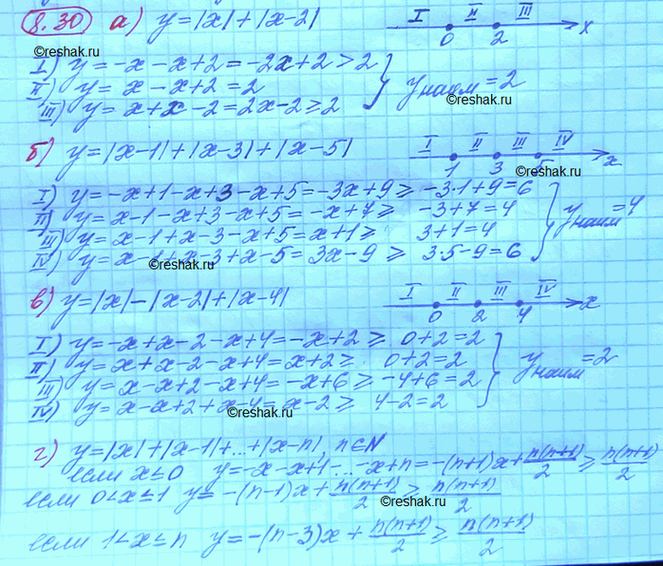 8.30 а) y=|x|+|x-2|
I II III
0 2 x
©reshak.ru
I) y=-x-x+2=-2x+2>2
II) y= x-x+2=2
III) y= x+x-2=2x-2≥2
y наим=2
©reshak.ru
б) y=|x-1|+|x-3|+|x-5|
I II III IV
1 3 5 x
©reshak.ru
I) y=-x+1-x+3-x+5=-3x+9≥ -3·1+9=6
II) y=x-1-x+3-x+5=-x+7≥ -3+7=4
III) y=x-1+x-3-x+5=x+1≥ 3+1=4
IV) y=x-1+x-3+x-5=3x-9≥ 3·5-9=6
y наим=4
©reshak.ru
в) y=|x|-|x-2|+|x-4|
I II III IV
0 2 4 x
I) y=-x+x-2-x+4=-x+2≥ 0+2=2
II) y=x+x-2-x+4=x+2≥ 0+2=2
III) y=x-x+2-x+4=-x+6≥-4+6=2
IV) y=x-x+2+x-4=x-2≥ 4-2=2
y наим=2
©reshak.ru
г) y=|x|+|x-1|+...+|x-n|, n∈N
если x≤0 y=-x-x+1-...-x+n=-(n+1)x+n(n+1)/2≥n(n+1)/2
если 0<x≤1 y=-(n-1)x+n(n+1)/2≥n(n+1)/2
©reshak.ru
если 1<x≤n y=-(n-3)x+n(n+1)/2≥n(n+1)/2